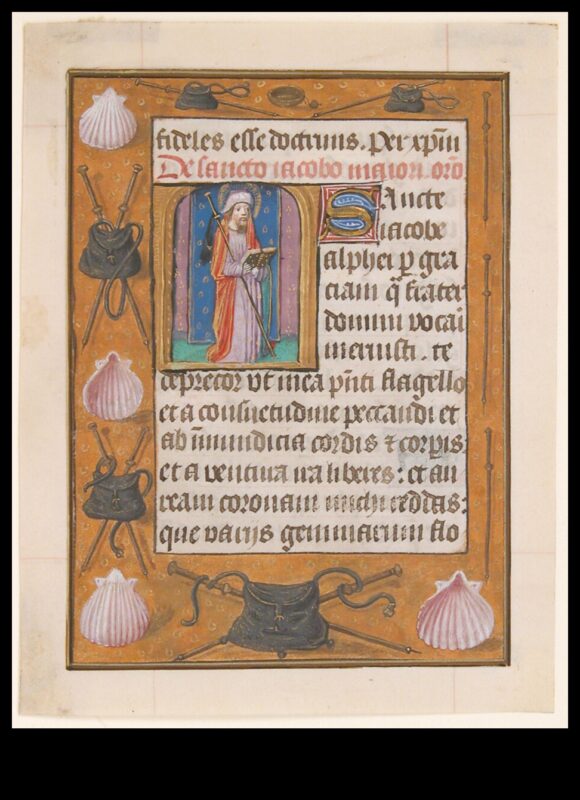 fideles esse doctrinis. Per xp̄m
De sancto iacobo maiori. or̄o
SAncte
iacobe
alphei p gra
ciam q̄ frater
domini vocari
meruisti. te
deprecor vt mea pn̄ti flagello
et a consuetudine peccandi et
ab īmundicia cordis ⁊ corpis
et a ventura ira liberes: et au
ream coronam michi reddas:
que varijs gemmarum flo